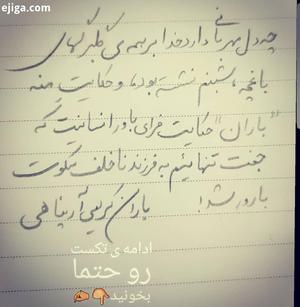 ejiga.com
چه دل مهربانی دارد خدا بر همه ی گلبرگهای
باغچه، شبنم نشسته بود، و حکایت منه
"باران" حکایت فرای باور انسانیت که
جفت تنهاییم به فرزند ناخلف سکوت
بارور شد!
باران کریمی آرپناهی
ادامه ی تکست
رو حتما
بخونید